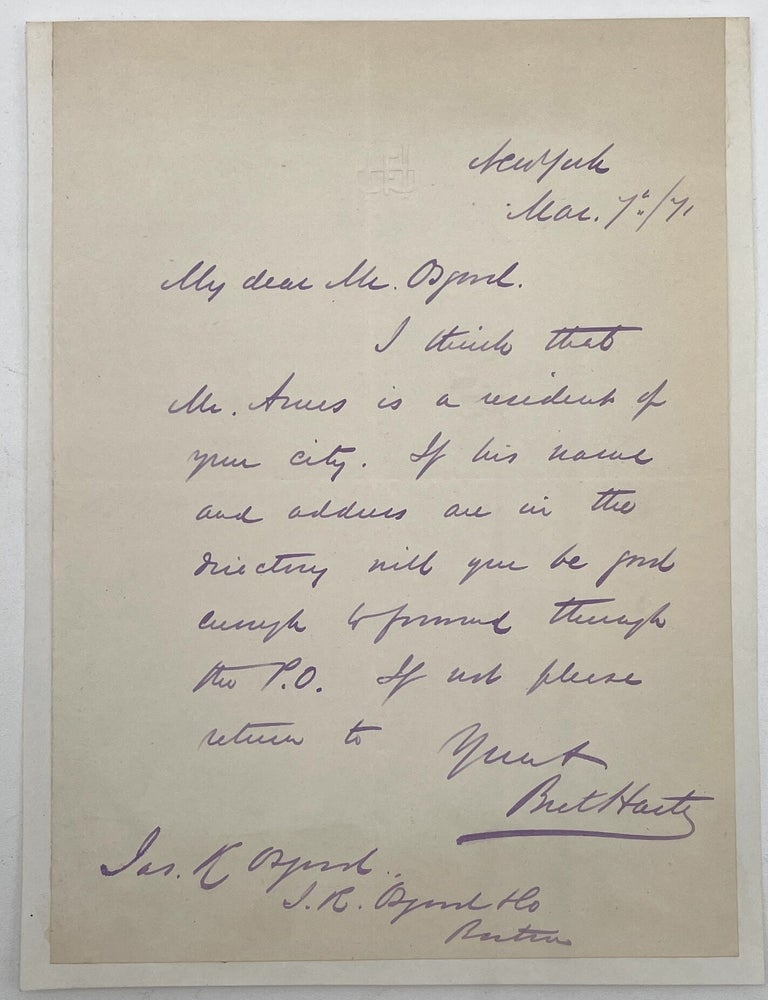 New York
Mar. 7"/71
My dear Mr. Osgood.
I think that
Mr. Ames is a resident of
your city. If his name
and address are in the
directory will you be good
enough to forward through
the P.O. If not please
return to
Yours
Bret Harte
Jas. R Osgood.
J. R. Osgood & Co
Boston